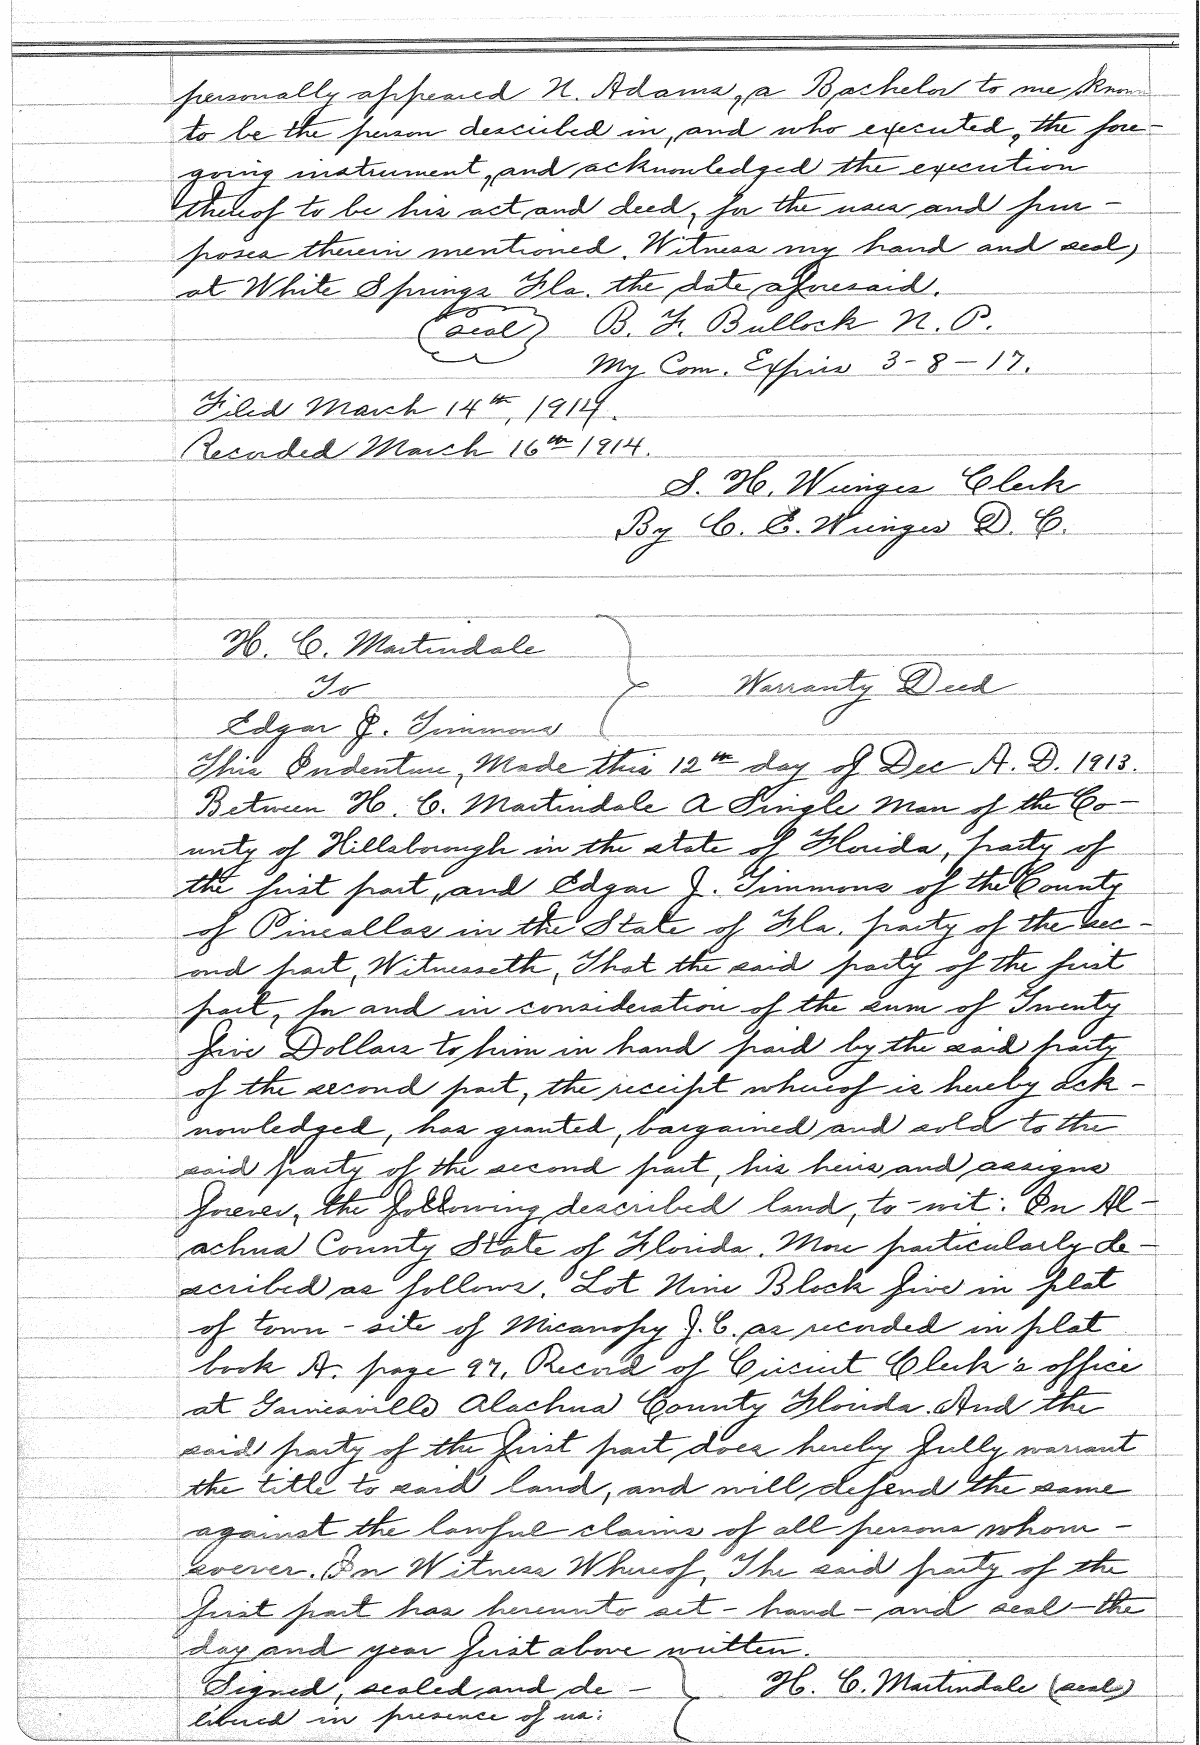 personally appeared N. Adams, a Bachelor to me known
to be the person described in, and who executed, the fore-
going instrument, and acknowledged the execution
thereof to be his act and deed, for the uses and pur-
poses therein mentioned. Witness my hand and seal,
at White Springs Fla. the date aforesaid.
(seal) B. F. Bullock N. P.
My Com. Expires 3-8-17.
Filed March 14th, 1914.
Recorded March 16th 1914.
S. H. Wienges Clerk
By C. E. Wienges D. C.
H. C. Martindale
To Warranty Deed
Edgar J. Timmons
This Indenture, Made this 12th day of Dec A. D. 1913.
Between H. C. Martindale A Single Man of the Co-
unty of Hillsborough in the state of Florida, party of
the first part, and Edgar J. Timmons of the County
of Pineallas in the State of Fla. party of the sec-
ond part, Witnesseth, That the said party of the first
part, for and in consideration of the sum of Twenty
five Dollars to him in hand paid by the said party
of the second part, the receipt whereof is hereby ack-
nowledged, has granted, bargained and sold to the
said party of the second part, his heirs and assigns
forever, the following described land, to-wit: In Al-
achua County State of Florida. More particularly de-
scribed as follows. Lot Nine Block five in plat
of town-site of Micanopy J. C. as recorded in plat
book A. page 97, Record of Circiut Clerk's office
at Gainesville Alachua County Florida. And the
said party of the first part does hereby fully warrant
the title to said land, and will defend the same
against the lawful claims of all persons whom-
soever. In Witness Whereof, The said party of the
first part has hereunto set - hand - and seal - the
day and year first above written.
Signed, sealed and de- H. C. Martindale (seal)
libered in presence of us: